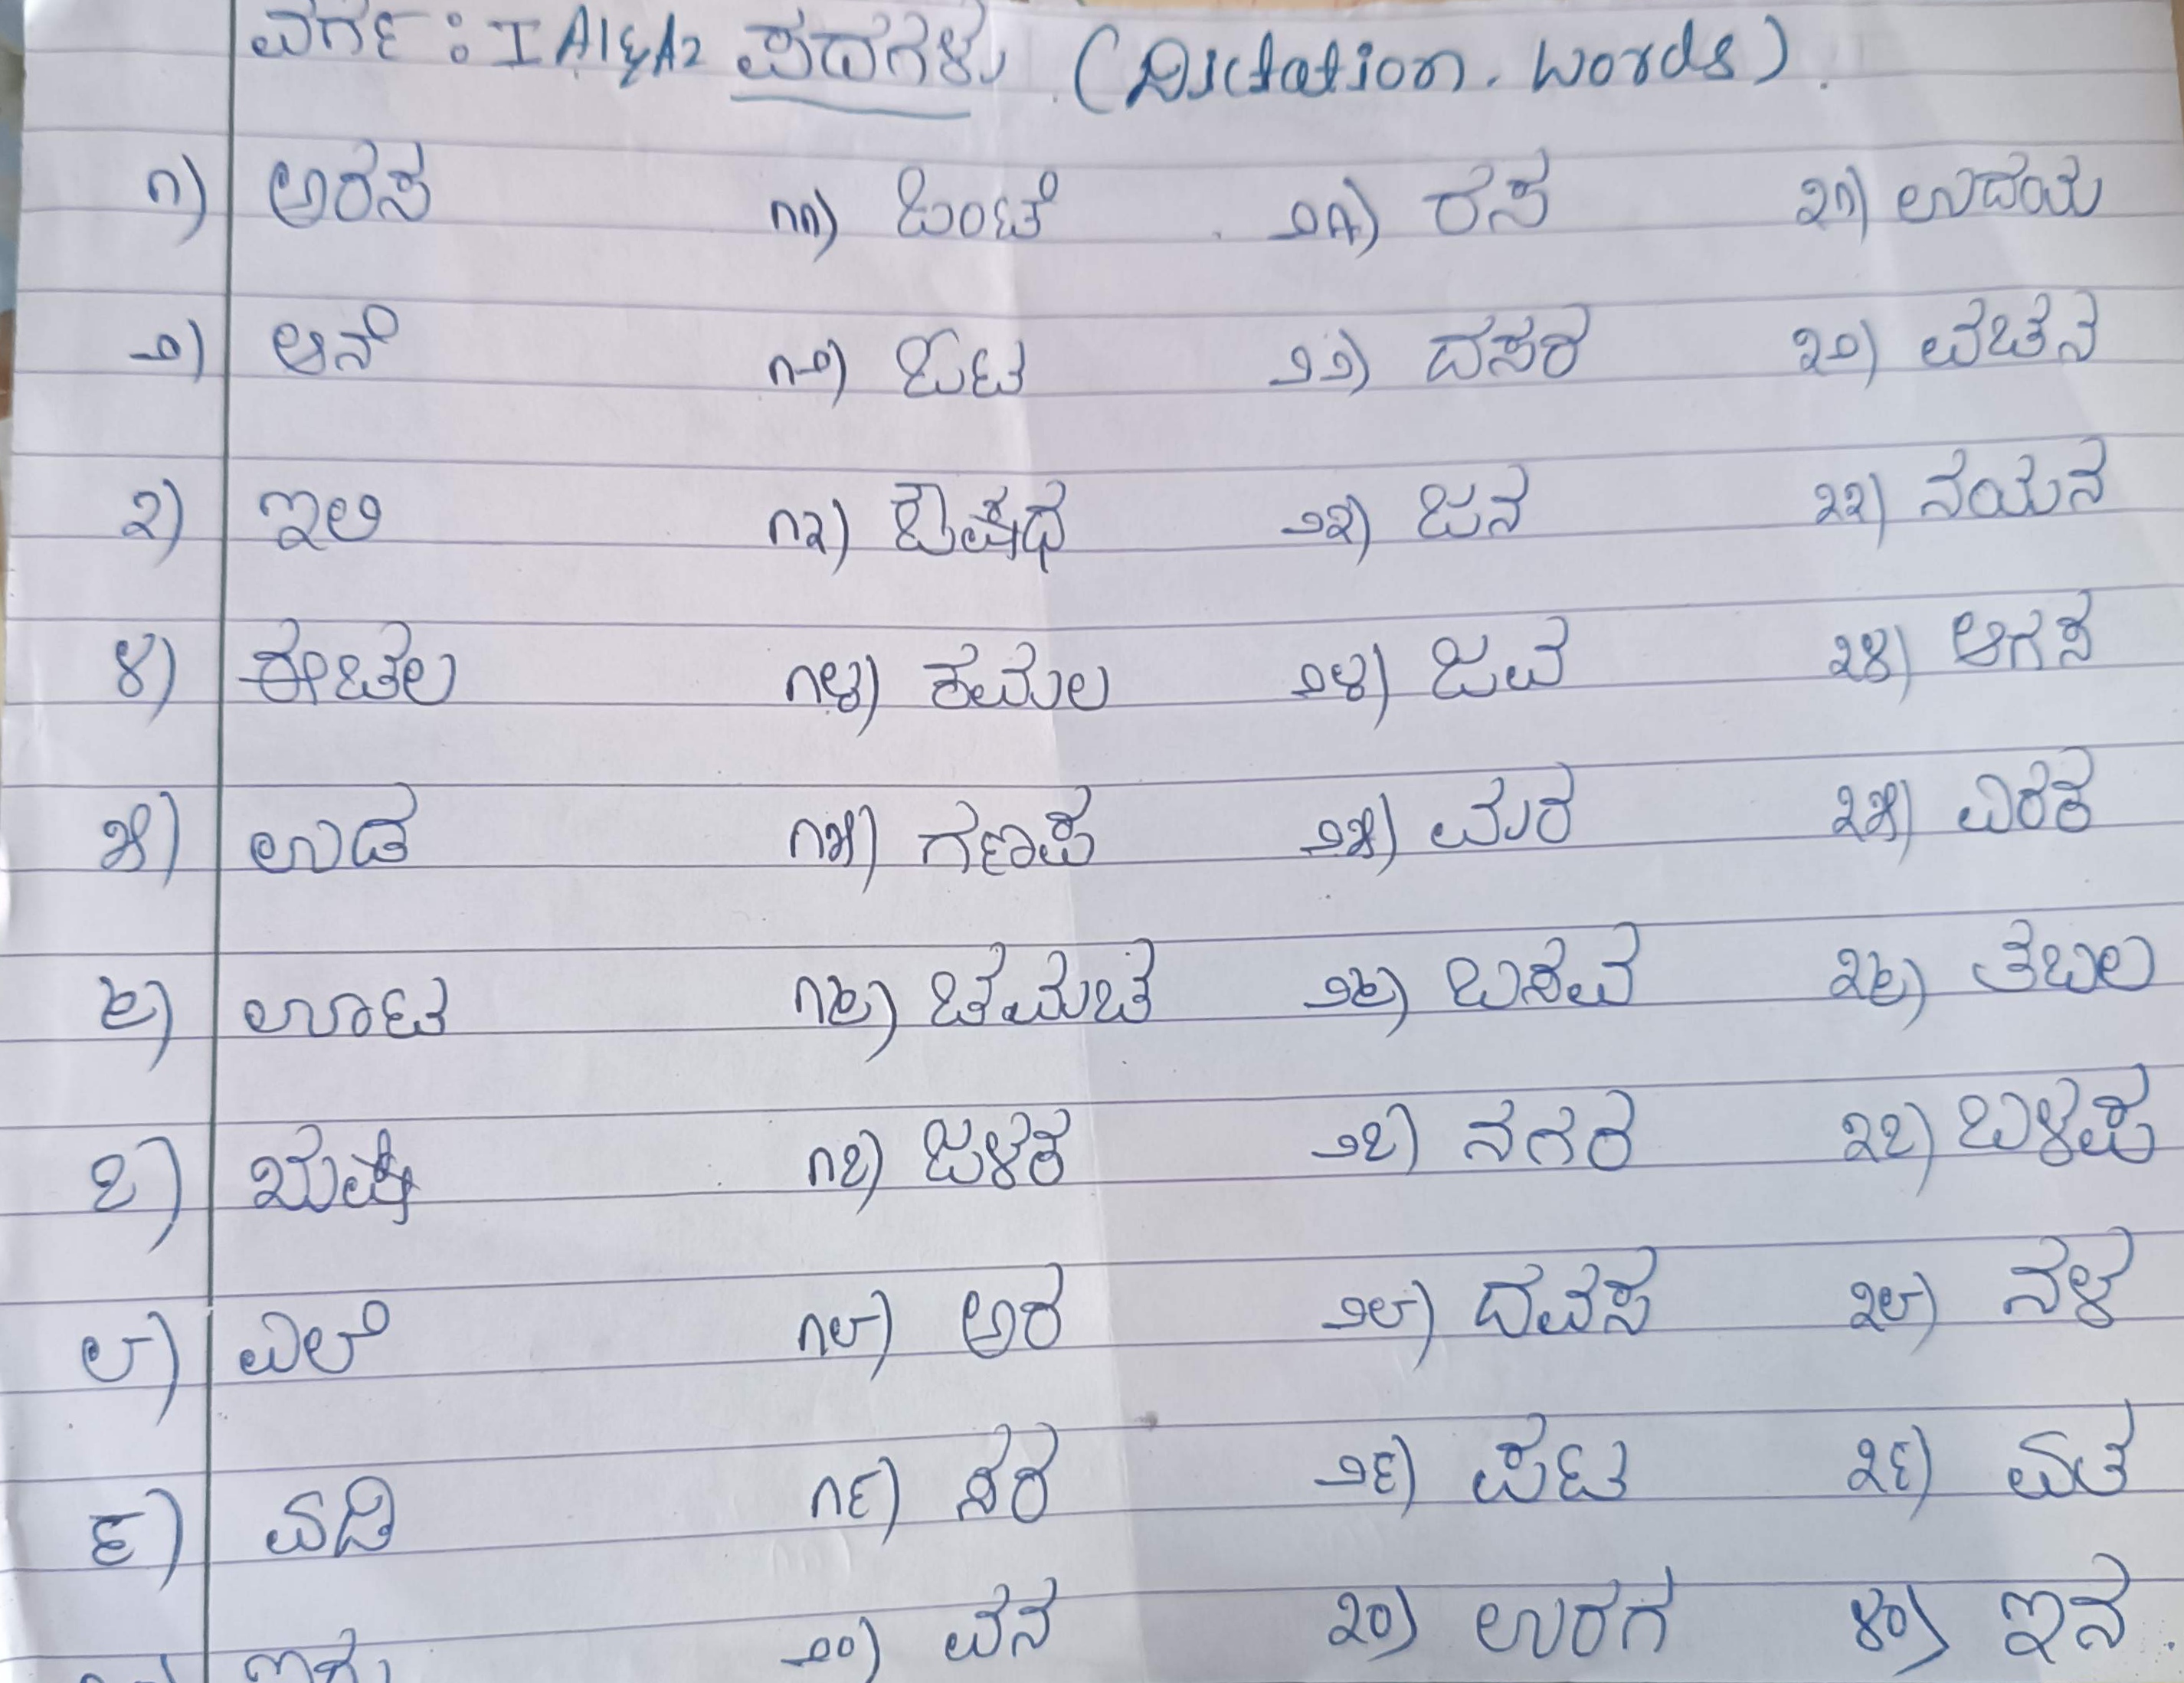 ವರ್ಗ : I A1&A2 ಪದಗಳು (Dictation. words).
೧) ಅರಸ ೧೧) ಒಂಟೆ ೨೧) ರಸ ೩೧) ಉದಯ
೨) ಆನೆ ೧೨) ಓಟ ೨೨) ದಸರ ೩೨) ವಚನ
೩) ಇಲಿ ೧೩) ಔಷಧ ೨೩) ಜನ ೩೩) ನಯನ
೪) ಈಚಲ ೧೪) ಕಮಲ ೨೪) ಜವ ೩೪) ಆಗಸ
೫) ಉಡ ೧೫) ಗಣಪ ೨೫) ಮರ ೩೫) ಎರಕ
೬) ಊಟ ೧೬) ಚಮಚ ೨೬) ಬಸವ ೩೬) ತಬಲ
೭) ಋಷಿ ೧೭) ಜಳಕ ೨೭) ನಗರ ೩೭) ಬಳಪ
೮) ಎಲೆ ೧೮) ಅರ ೨೮) ದವಸ ೩೮) ನಳ
೯) ಏಡಿ ೧೯) ಸರ ೨೯) ಪಟ ೩೯) ಏತ
೨೦) ವನ ೩೦) ಉರಗ ೪೦) ಇನ.